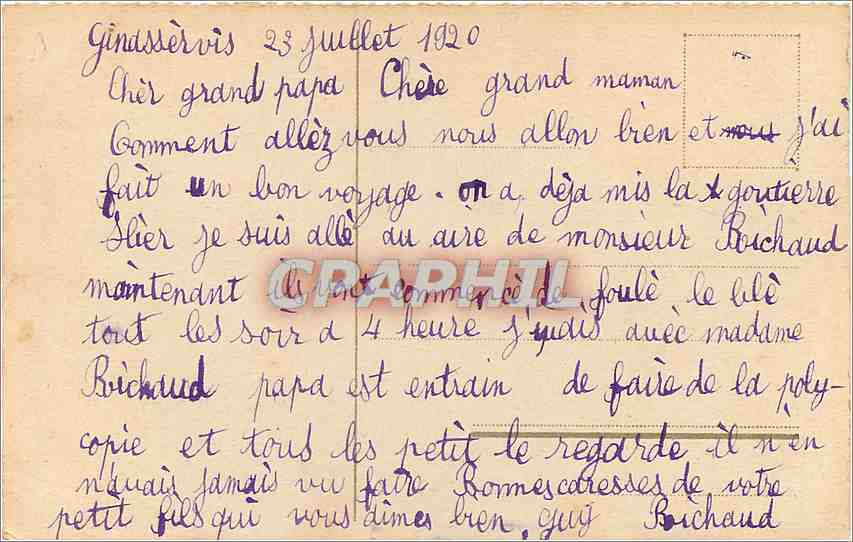 Ginassèrvis 23 juillet 1920
Chèr grand papa Chère grand maman
Comment allèz vous nous allon bièn et nous j'ai
fait un bon voyage. on a dèja mis la goutièrre
Hier je suis allè au aire de monsieur Boichaud
maintenant ils vont commencè de foulè le blè
tout les soir a 4 heure j'y vais avèc madame
Boichaud papa est entrain de faire de la poly-
copie et tous les petit le regarde il n'èn
n'avais jamais vu faire Bonnes caresses de votre
petit fils qui vous aimes bien. Guy Boichaud
CPAPHIL